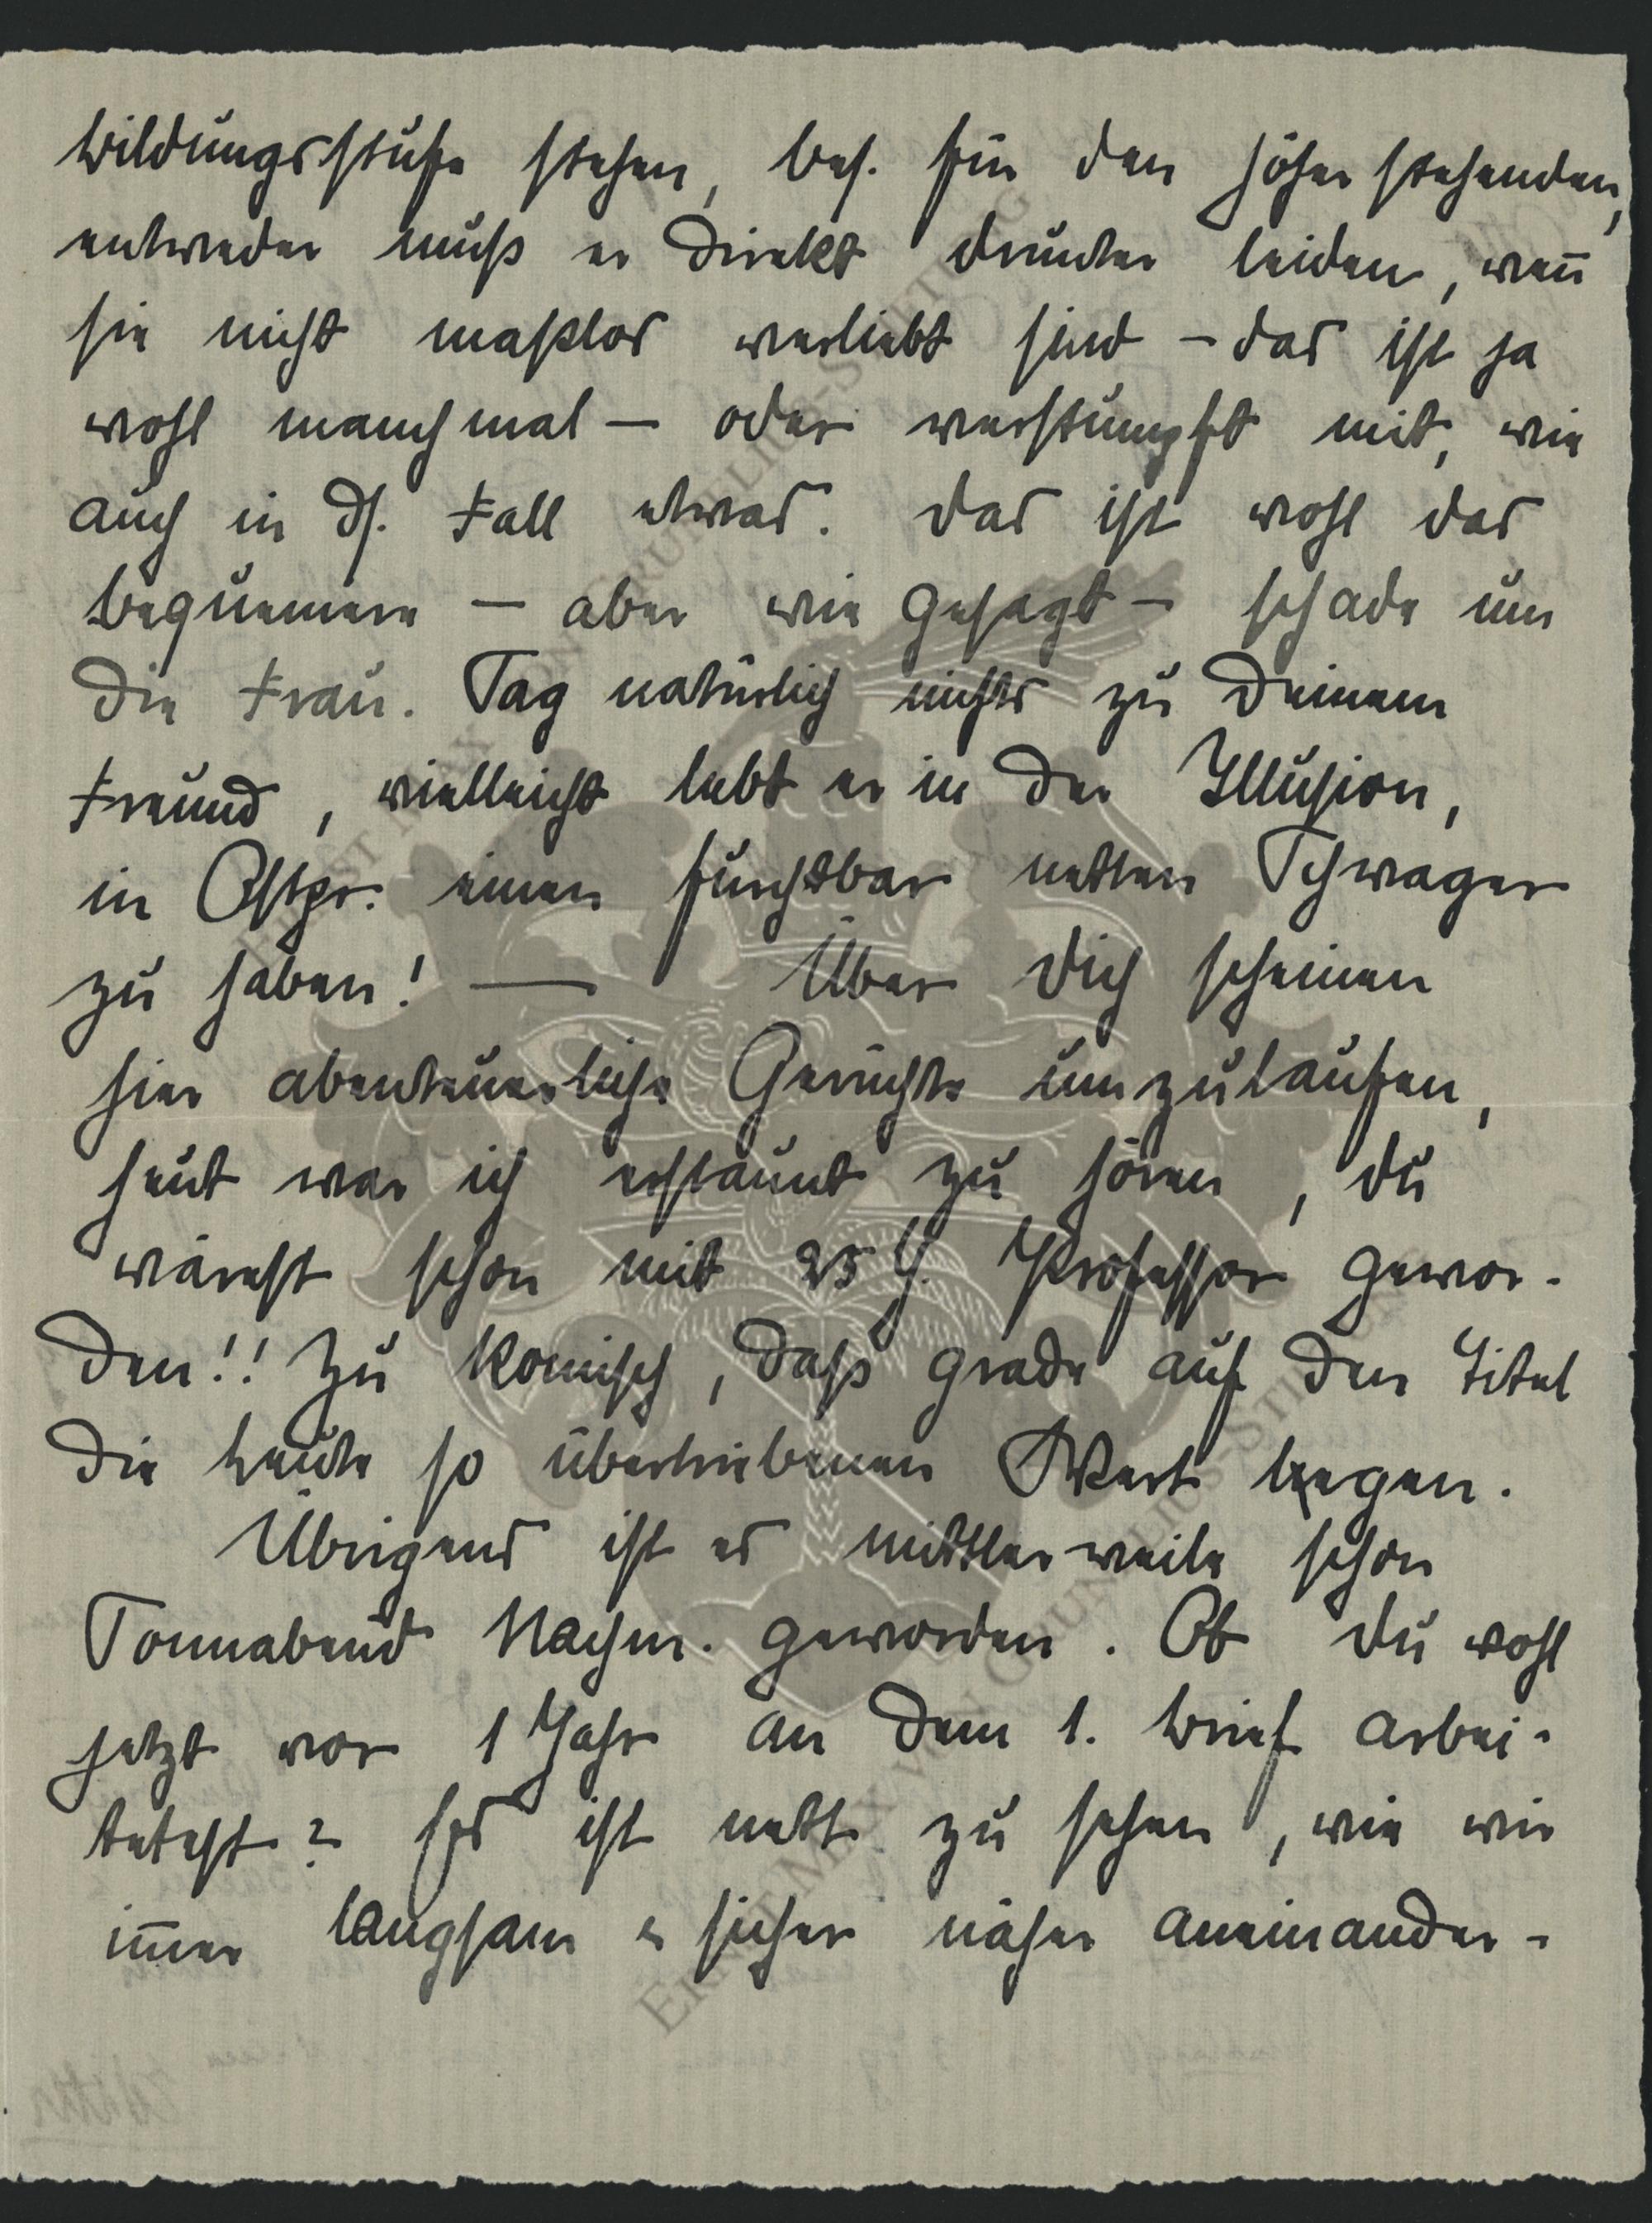 Bildungsstufe stehen, bes. für den höher stehenden,
entweder muß er direkt drunter leiden, weñ
sie nicht maßlos verliebt sind – das ist ja
wohl manchmal – oder verstumpft mit, wie
auch in ds. Fall etwas. Das ist wohl das
bequemere – aber wie gesagt – schade um
die Frau. Sag natürlich nichts zu Deinem
Freund, vielleicht lebt er in der Illusion,
in Ostpr. einen furchtbar netten Schwager
zu haben! — Über Dich scheinen
hier abenteuerliche Gerüchte umzulaufen,
heut war ich erstaunt zu hören, Du
wärest schon mit 25 J. Professor gewor-
den!! Zu komisch, daß grade auf den Titel
die Leute so übertriebenen Wert legen.
Übrigens ist es mittlerweile schon
Sonnabend Nachm. geworden. Ob Du wohl
jetzt vor 1 Jahr an dem 1. Brief arbei-
tetest? Es ist nett zu sehen, wie wir
im̃er langsam & sicher näher aneinander-
ERNST MAX VON GRUNELIUS-STIFTUNG
ERNST MAX VON GRUNELIUS-STIFTUNG